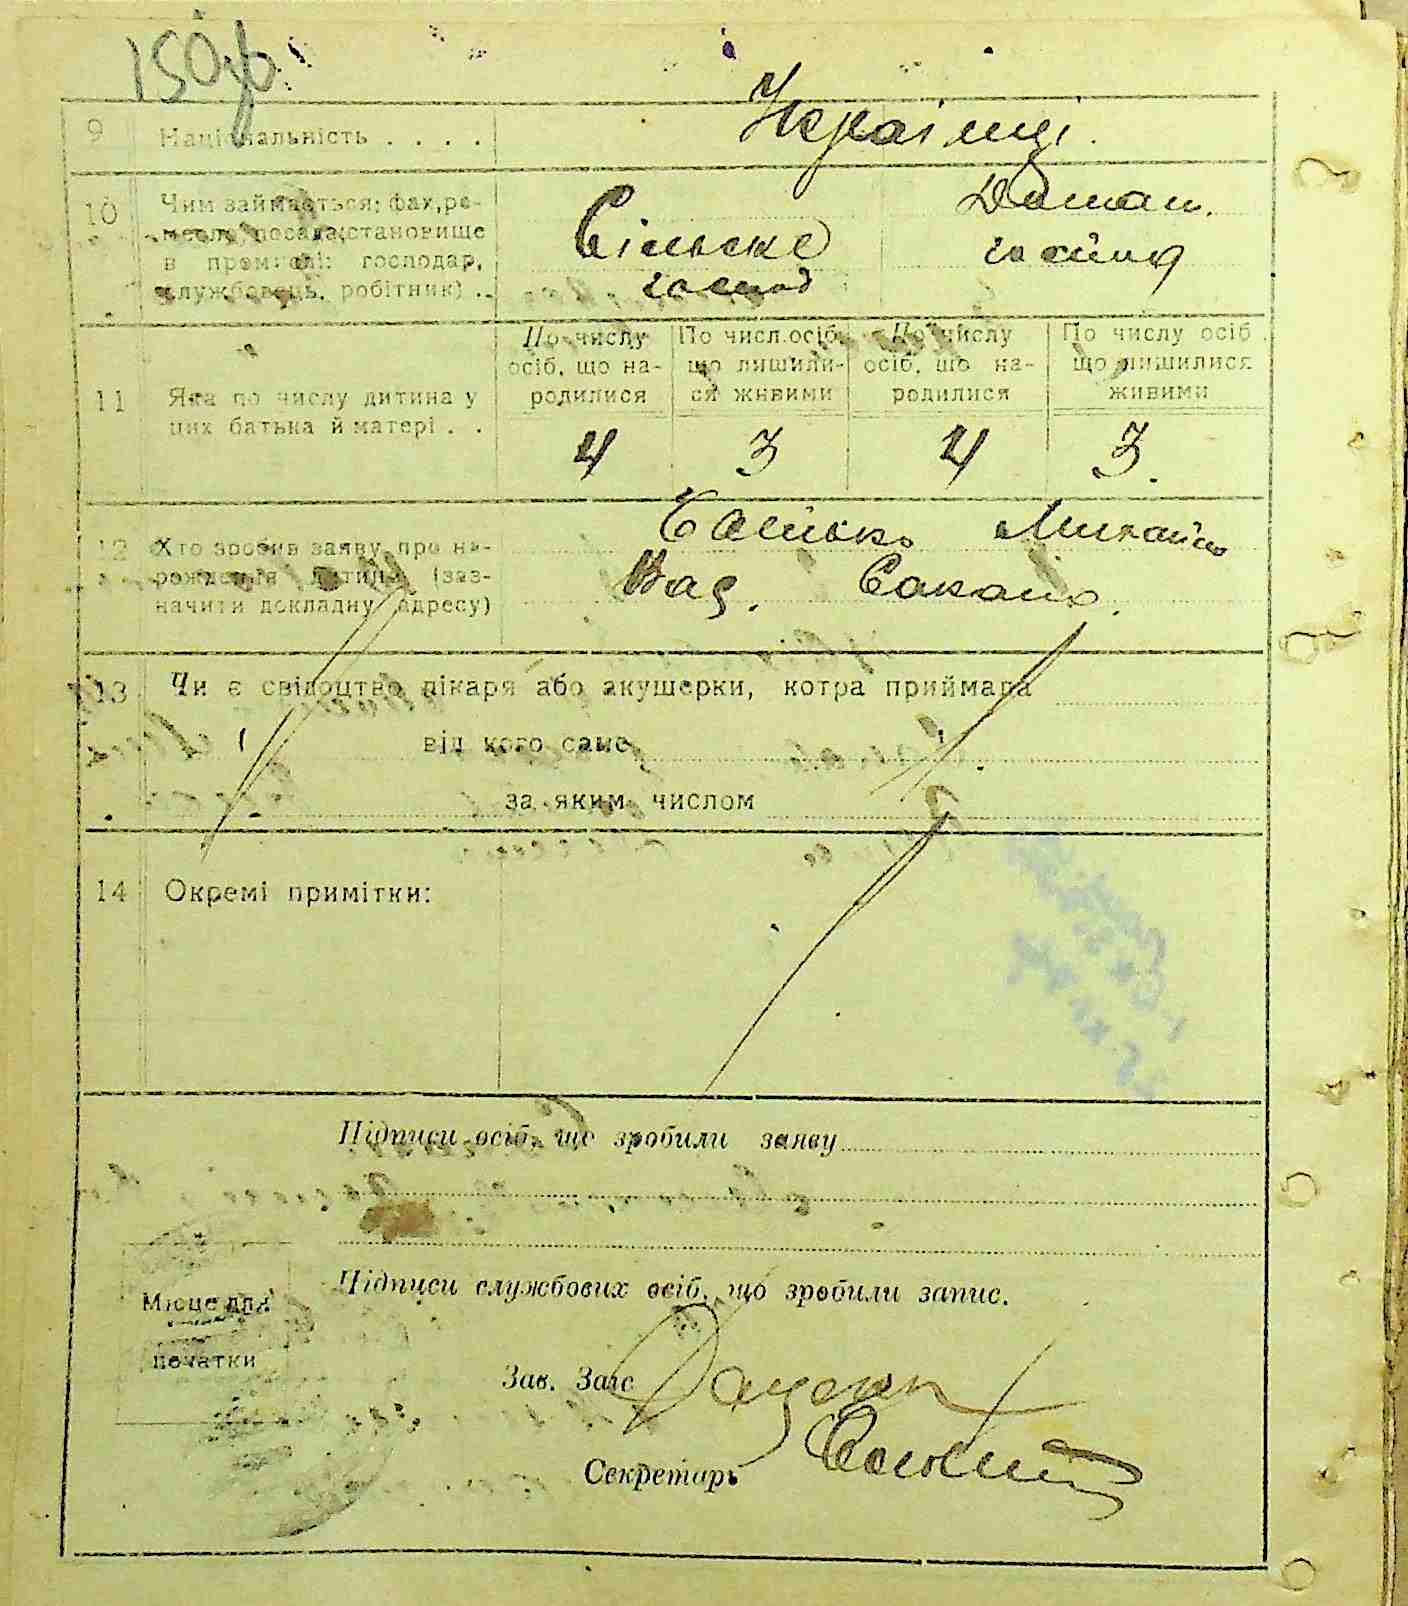 150зв.
9 Національність . . . . Українці.
10 Чим займається; фах, ре-
месло, посада, становище
в промислі: господар,
службовець, робітник) . .
Сільське Домаш.
господ госпо
По числу осіб, що на-родилися
По числ. осіб що лишили-ся живими
По числу осіб, що на-родилися
По числу осіб що лишилися живими
11 Яка по числу дитина у
цих батька й матері . .
4 3 4 3.
12 Хто зробив заяву про на-
родження дитини (заз-
начити докладну адресу)
Батько Михайло
13 Чи є свідоцтво лікаря або акушерки, котра приймала
від кого саме
за яким числом
14 Окремі примітки:
Підписи осіб, що зробили заяву
Підписи службових осіб, що зробили запис.
Місце для
печатки
Зав. Загс
Секретарь